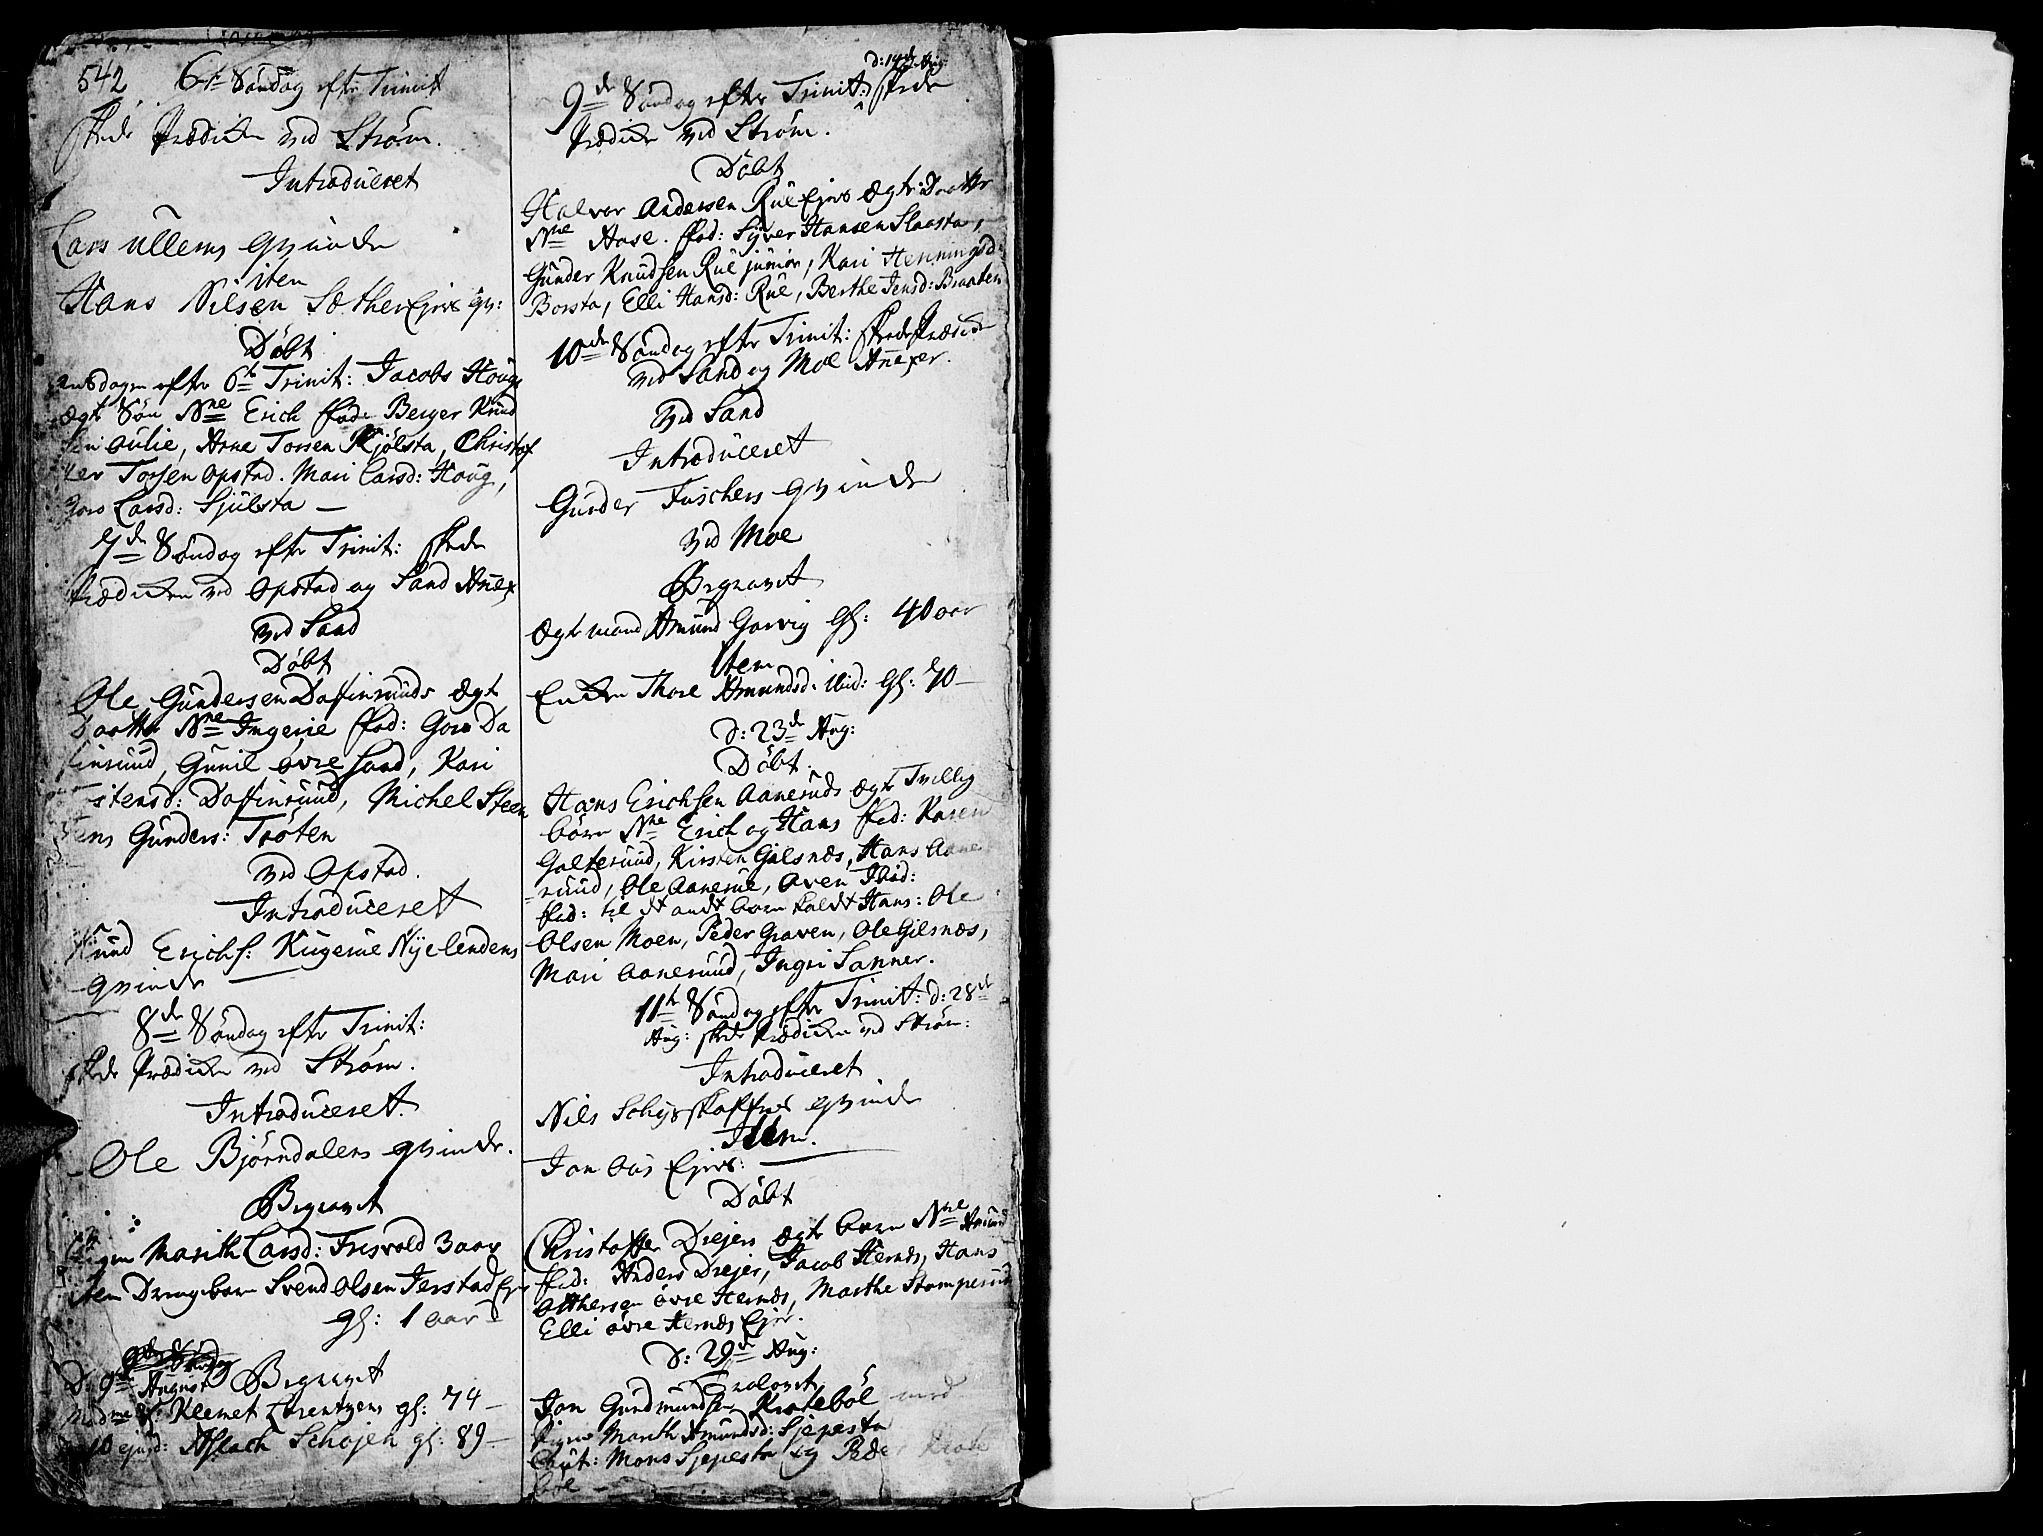 542 6te Søndag efter Trinit
skede Prædiken ved Strøm.
Introduceret
Lars Ullerns Qvinde
iten
Hans Nilsen Sæther Ejers Qv:
Døbt
efter 6te Trinit: Jacobs Houg
Ægte Søn Nne Erich ffad: Berger Knud
sen Aulie, Arne Torsen Kjølsta, Christof
fer Torsen Opstad. Mari Larsd: Houg,
Goro Larsd: Sjulsta —
7de Søndag efter Trinit: skede
Prædiken ved Opstad og Sand Annex
ved Sand
Døbt
Ole Gundersen Daffinruds Ægt
Daatter Nne Ingerie ffad: Goro Da
finruud, Gunil øvre Sand, Kari
stensd: Daffinruud, Michel Steen
Gunders: Trøten
ved Opstad.
Introduceret
Knud Erichs: Kugerue Nye lendens
Qvinde —
8de Søndag efter Trinit:
skede Prædiken ved Strøm.
Introduceret.
Ole Bjørndalens Qvinde.
Begravet
Pigen Marith Larsd: Frisvold 3 aar
item Drengebarn Svend Olsen Jerstad Ejer
gl: 1 aar
D: 9de August Begravet
Klemet Lorentzens gl: 74 —
10 ejusd: Aslach Schojen gl: 89 —
d: 14de Aug:
9de Søndag efter Trinit: skede
Prædiken ved Strøm.
Døbt
Halvor Andersen Rue Ejers Ægte Daatter
Nne Aase. ffad: Syver Hansen Slaasta,
Gunder Knudsen Rue junior, Kari Henningsd:
Borsta, Elli Hansd: Rue, Berthe Jensd: Braaten
10de Søndag efter Trinit: skede Prædiken
ved Sand og Moe Annexer.
ved Sand
Introduceret
Gunder Fuschers Qvinde
ved Moe
Begravet
Ægte mand Amund Garvig Gl: 40 aar
Item
Enken Thore Amundsd: ibid: Gl: 70 —
D: 23de Aug:
Døbt.
Hans Erichsen Aaneruds Ægte Tvilling
børn Nne Erich og Hans ffad: Karen
Galteruud, Kirsten Gilsnæs, Hans Aane
ruud, Ole Aanerue, Aven Ibid:
ffad: til dt andt barn kaldt Hans: Ole
Olsen Moen, Peder Graven, Ole Gilsnæs,
Mari Aaneruud, Ingri Sanner.
11te Søndag efter Trinit: d: 28de
Aug: skede Prædiken ved Strøm:
Introduceret
Nils Schys Qvinde
Item.
Jon Aas Ejers: —
Døbt
Christoffer Drejers Ægte barn Nne Amund
ffad: Anders Drejer, Jacob Hernæs, Hans
Ottersen øvre Hernæs, Marthe Stomperud
Elli øvre Hernæs Ejer.
D: 29de Aug:
Trolovet
Jon Gundmundsen Kratebøl med
Pigen Marith Amundsd: Sjepesta
Caut: Mons Sjepesta og Peder Krate
bøl —